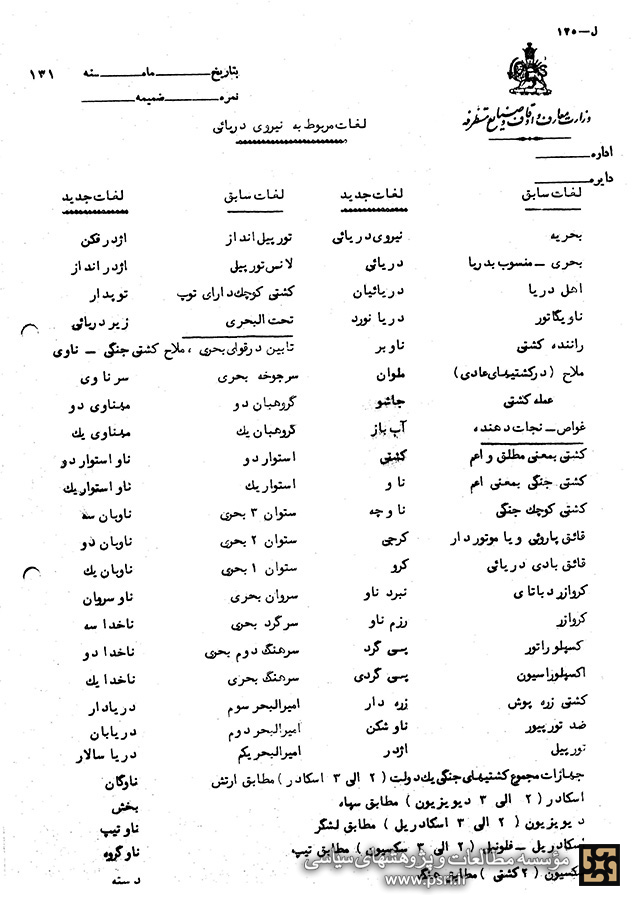 ل-۱۲۰
۱۳۱
بتاریخ ماه سنه
نمره ضمیمه
وزارت معارف و اوقاف و صنایع مستظرفه
اداره
دایره
لغات مربوط به نیروی دریائی
لغات سابق لغات جدید لغات سابق لغات جدید
بحریه نیروی دریائی تورپیل انداز اژدر فکن
بحری - منسوب بدریا دریائی لانس تورپیل اژدر انداز
اهل دریا دریائیان کشتی کوچک دارای توپ توپدار
ناویگاتور دریا نورد تحت البحری زیر دریائی
راننده کشتی ناوبر تابین در قوای بحری ، ملاح کشتی جنگی - ناوی
ملاح (در کشتیهای عادی) ملوان سرجوخه بحری سر ناوی
عمله کشتی جاشو گروهبان دو مهناوی دو
غواص - نجات دهنده آب باز گروهبان یک مهناوی یک
کشتی بمعنی مطلق و اعم کشتی استوار دو ناو استوار دو
کشتی جنگی بمعنی اعم ناو استوار یک ناو استوار یک
کشتی کوچک جنگی ناوچه ستوان ۳ بحری ناوبان سه
قائق پاروئی و یا موتور دار کرجی ستوان ۲ بحری ناوبان دو
قائق بادی دریائی کرو ستوان ۱ بحری ناوبان یک
کروازر دباتای نبرد ناو سروان بحری ناو سروان
کروازر رزم ناو سرگرد بحری ناخدا سه
کسپلوراتور پسی گرد سرهنگ دوم بحری ناخدا دو
اکسپلوراسیون پسی گردی سرهنگ بحری ناخدا یک
کشتی زره پوش زره دار امیرالبحر سوم دریادار
ضد تورپیور ناو شکن امیرالبحر دوم دریابان
تورپیل اژدر امیرالبحر یکم دریا سالار
جهازات مجموع کشتیهای جنگی یک دولت (۲ الی ۳ اسکادر) مطابق ارتش ناوگان
اسکادر (۲ الی ۳ دیویزیون) مطابق سپاه بخش
دیویزیون (۲ الی ۳ اسکادریل) مطابق لشگر ناوتیپ
اسکادریل - فلوتیل (۲ الی ۳ سکسیون) مطابق تیپ ناوگروه
سکسیون (۲ کشتی) مطابق دسته
مؤسسه مطالعات و پژوهشهای سیاسی
www.psri.ir